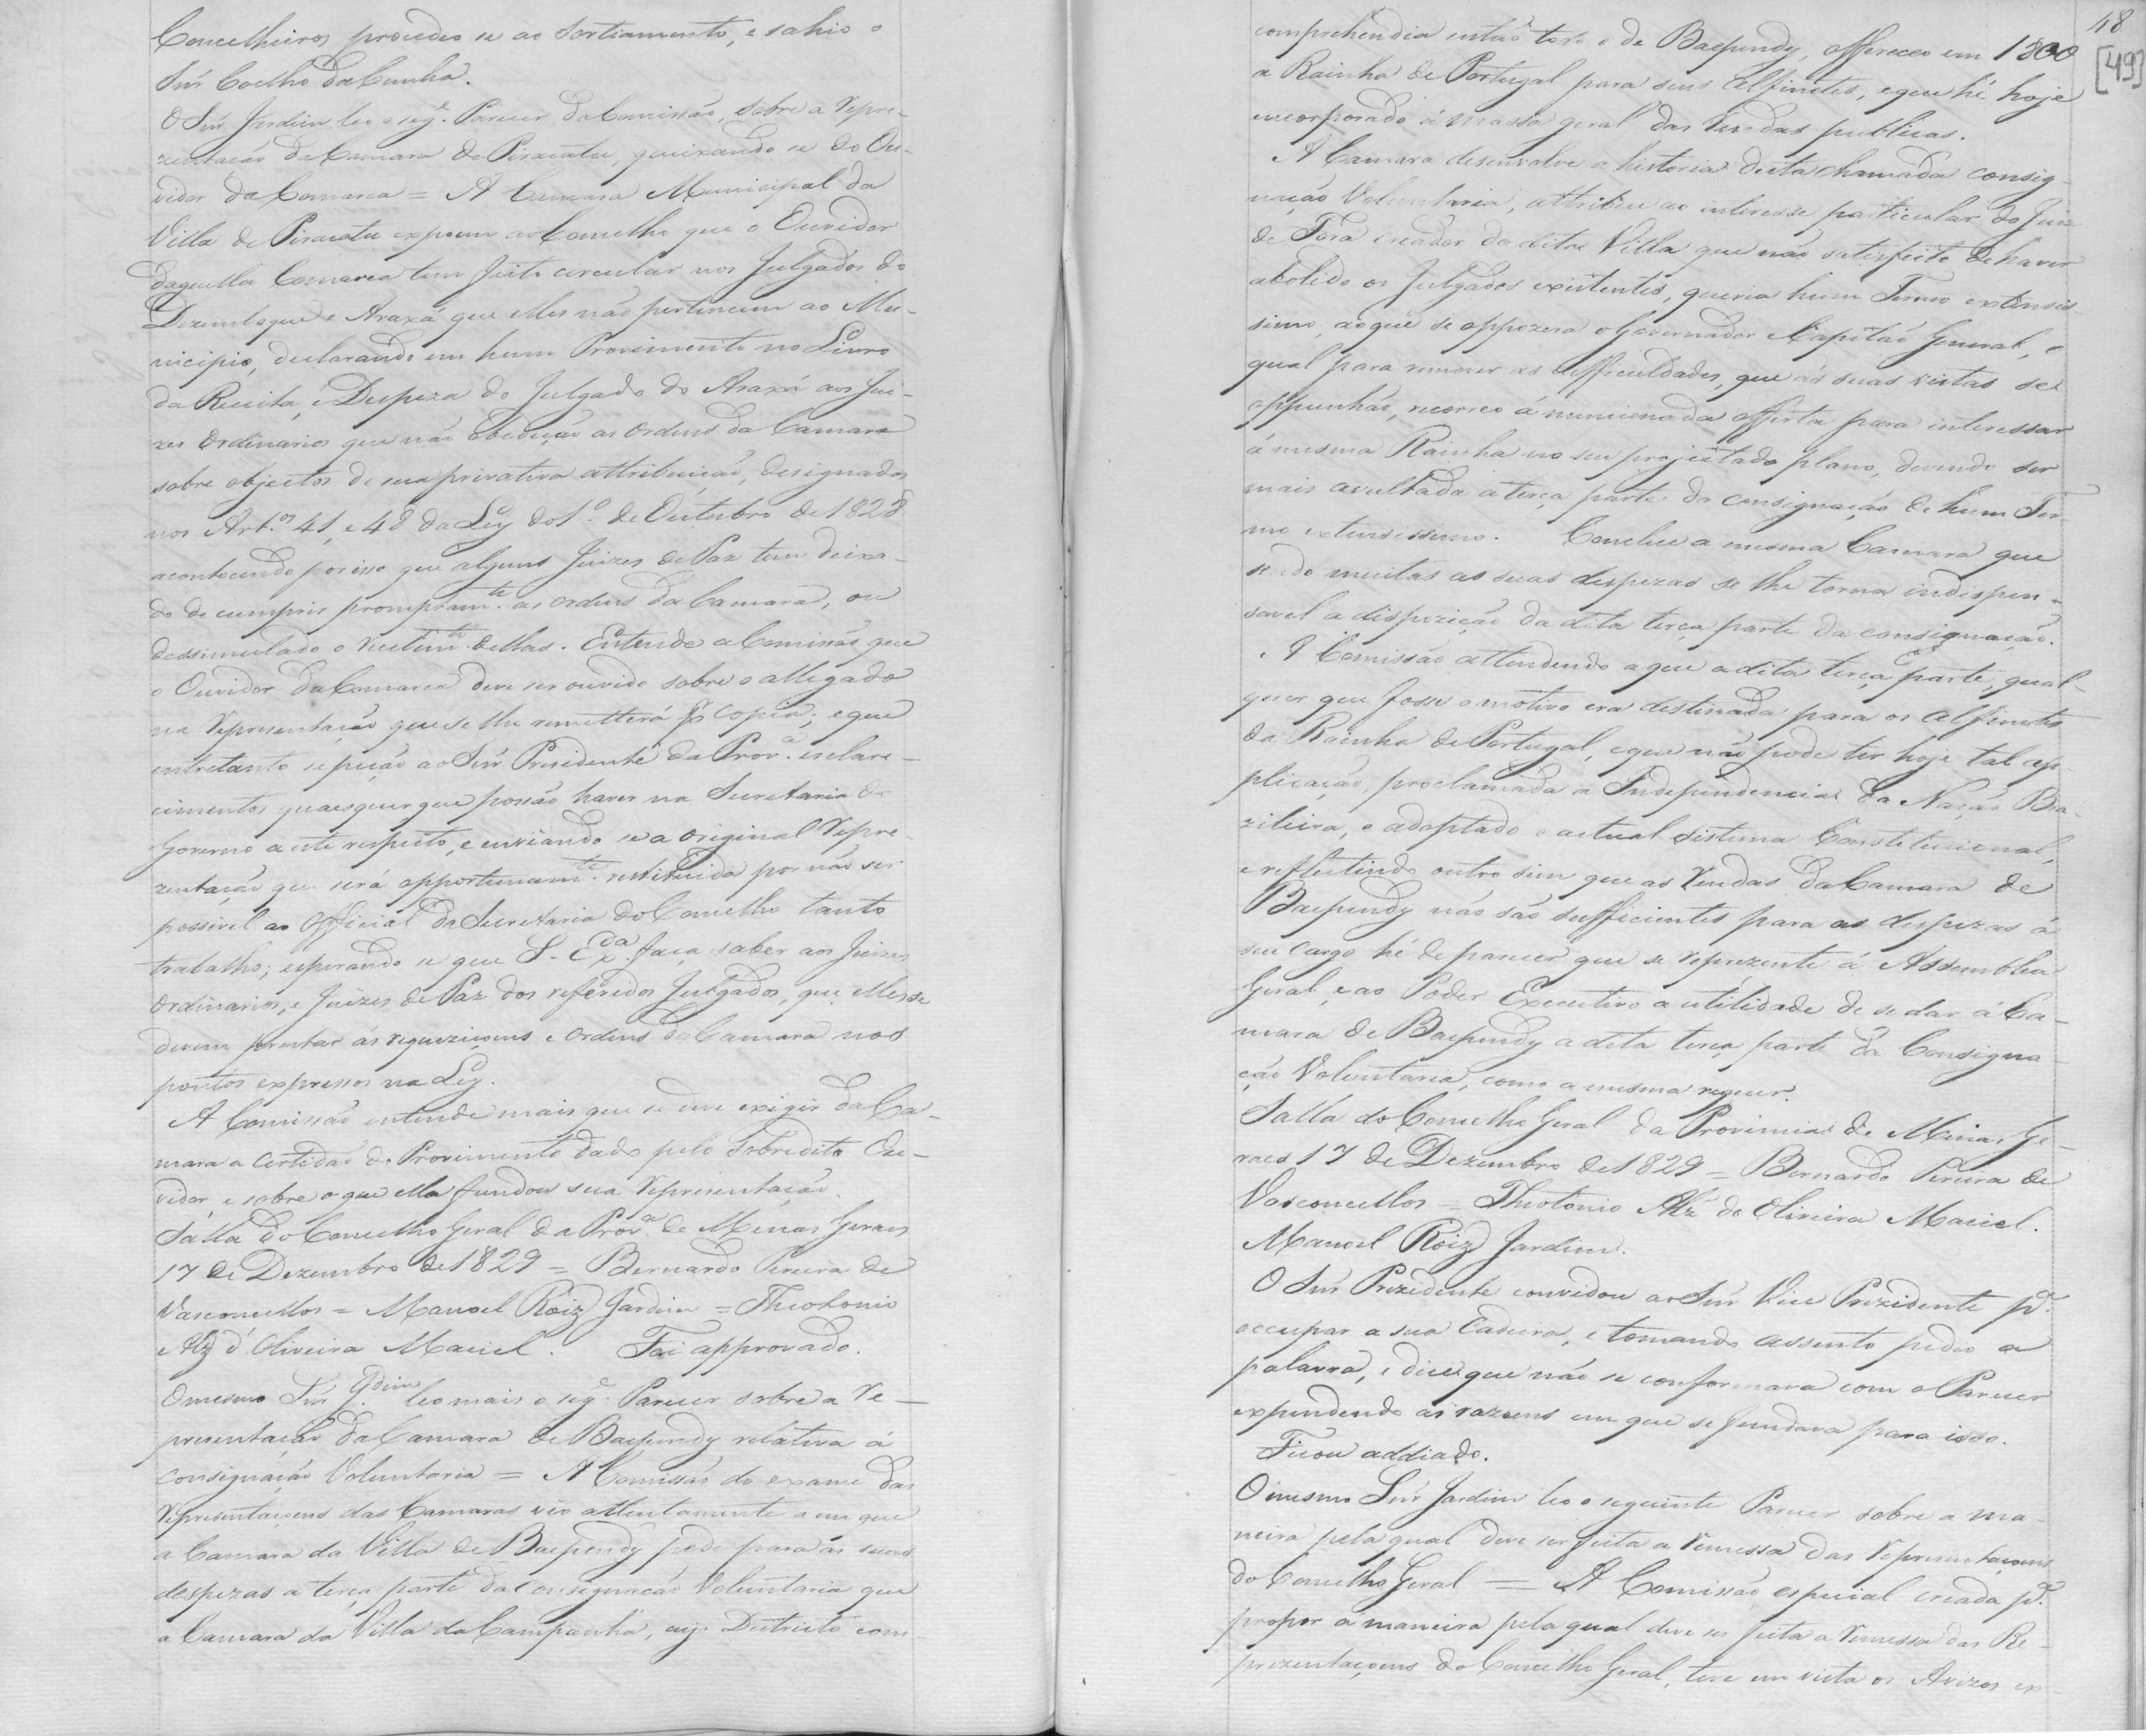 Concelheiros procedeo se ao Sortiamento, e sahio o
Snr̃ Coelho da Cunha.
O Snr̃ Jardim leo o seg.e Parecer da Comissão, sobre a Repre-
zentação da Camara de Piracatu, queixando se do Ou-
vidor da Comarca = A Camara Municipal da
Villa de Piracatu expoem ao Concelho que o Ouvidor
daquella Comarca tem feito circular nos Julgados do
Dezemboque e Araxá que elles não pertencem ao Mu-
nicipio, declarando em hum Provimento no Livro
da Receita, e Despeza do Julgado do Araxá aos Jui-
zes Ordinarios que não obedeção as Ordens da Camara
sobre objectos de sua privativa attribuição, designados
nos Art.os 41, e 48 da Ley do 1.o de Outubro de 1828
acontecendo por isso que alguns Juizes de Paz tem deixa-
do de cumprir promptam.te as ordens da Camara, ou
dessimulado o dellas. Entende a Comissão que
o Ouvidor da Comarca deve ser ouvido sobre o allegado
na Representação que se lhe remetterá por copia; e que
entretanto se peção ao Snr̃ Presidente da Prov.a esclare-
cimentos quaesquer que possão haver na Secretaria do
Governo a este respeito, e enviando se a original Repre-
zentação que será opportunam.te restituida por não ser
possivel ao Official da Secretaria do Concelho tanto
trabalho; esperando se que S. Ex.da faça saber aos Juizes
Ordinarios, e Juizes de Paz dos referidos Julgados, que elles se
devem prestar ás requiziçoens e ordens da Camara nos
pontos expressos na Ley.
A Comissão entende mais que se deve exigir da Ca-
mara a Certidão do Provimento dado pelo Sobredito Ou-
vidor, e sobre o que ella fundou sua Representação.
Salla do Concelho Geral da Prov.a de Minas Geraes
17 de Dezembro de 1829 = Bernardo Pereira de
Vasconcellos = Manoel Roiz Jardim = Theotonio
Alz d'Oliveira Maciel. Foi approvado.
O mesmo Snr̃ J.dim leo mais o seg.e Parecer sobre a Re-
presentação da Camara de Baependy relativa á
consignação Voluntaria = A Comissão do exame das
Representaçoens das Camaras vio attentamente a em que
a Camara da Villa de Baependy pede para as suas
despezas a terça parte da Consignação Voluntaria que
a Camara da Villa da Campanha, cujo Destricto com-
48
[49]
comprehendia então todo o de Baependy, offereceo em 1800
a Rainha de Portugal para seus Alfinetes, e que hé hoje
encorporado á massa geral das Rendas publicas.
A Camara desenvolve a historia desta chamada consig-
nação Voluntaria, attribue ao interesse particular do Juiz
de Fora creador da dita Villa que não satisfeito de haver
abolido os Julgados existentes, queria hum Termo extensis-
simo, ao que se oppozera o Governador e Capitão General, o
qual para remover as difficuldades, que ás suas vistas se
oppunhão, recorreo á mencionada offerta para interessar
á mesma Rainha no seu projectado plano, devendo ser
mais avultada a terça parte da consignação de hum Ter-
mo extensissimo. Conclue a mesma Camara que
sendo muitas as suas despezas se lhe torna indispen-
savel a dispozição da dita terça parte da consignação.
A Comissão attendendo a que a dita terça parte, qual-
quer que fosse o motivo era destinada para os Alfinetes
da Rainha de Portugal, e que não pode ter hoje tal ap-
plicação, proclamada a Independencia da Nação Bra-
zileira, e adoptado o actual sistema Constitucional,
e reflectindo outro sim que as Rendas da Camara de
Baependy não são sufficientes para as despezas á
seu cargo hé de parecer que se reprezente á Assemblea
Geral, e ao Poder Executivo a utilidade de se dar á Ca-
mara de Baependy a dita terça parte da Consigna-
ção Voluntaria, como a mesma requer.
Salla do Concelho Geral da Provincia de Minas Ge-
raes 17 de Dezembro de 1829 = Bernardo Pereira de
Vasconcellos = Theotonio Alz de Oliveira Maciel.
Manoel Roiz Jardim.
O Snr̃ Prezidente convidou ao Snr̃ Vice Prezidente p.a
occupar a sua Cadeira, e tomando assento pedio a
palavra, e dice que não se conformava com o Parecer
expendendo as razoens em que se fundava para isso.
Ficou addiado.
O mesmo Snr̃ Jardim leo o seguinte Parecer sobre a ma-
neira pela qual deve ser feita a Remessa das Representaçoens
do Concelho Geral = A Comissão especial creada p.a
propor a maneira pela qual deve ser feita a Remessa das Re-
prezentaçoens do Concelho Geral, teve em vista os Avizos ex-